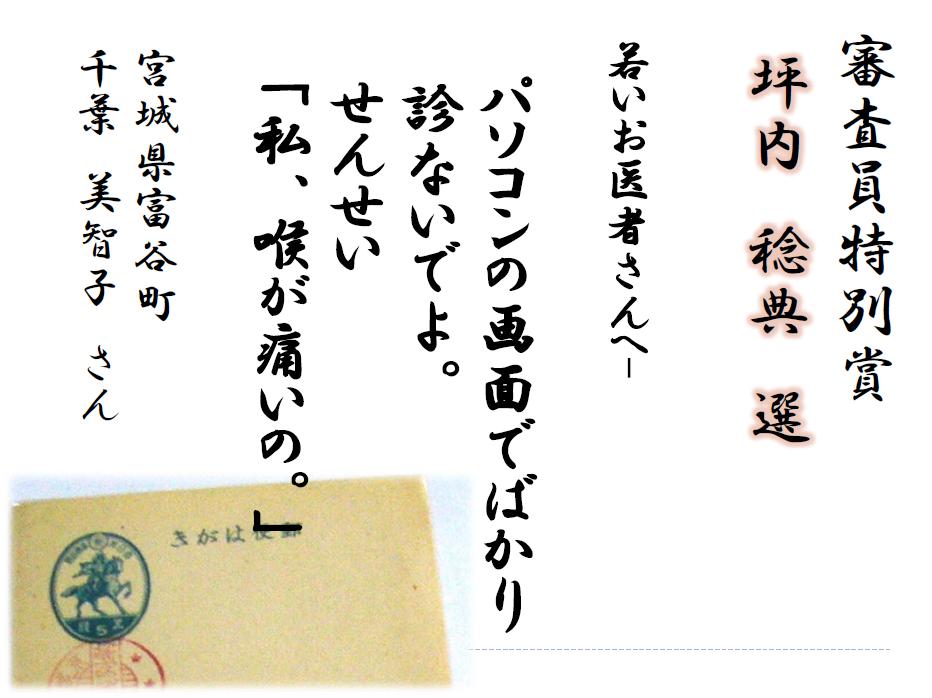 審査員特別賞
坪内 稔典 選
若いお医者さんへ―
パソコンの画面でばかり
診ないでよ。
せんせい
「私、喉が痛いの。」
宮城県富谷町
千葉 美智子 さん
きがは便郵